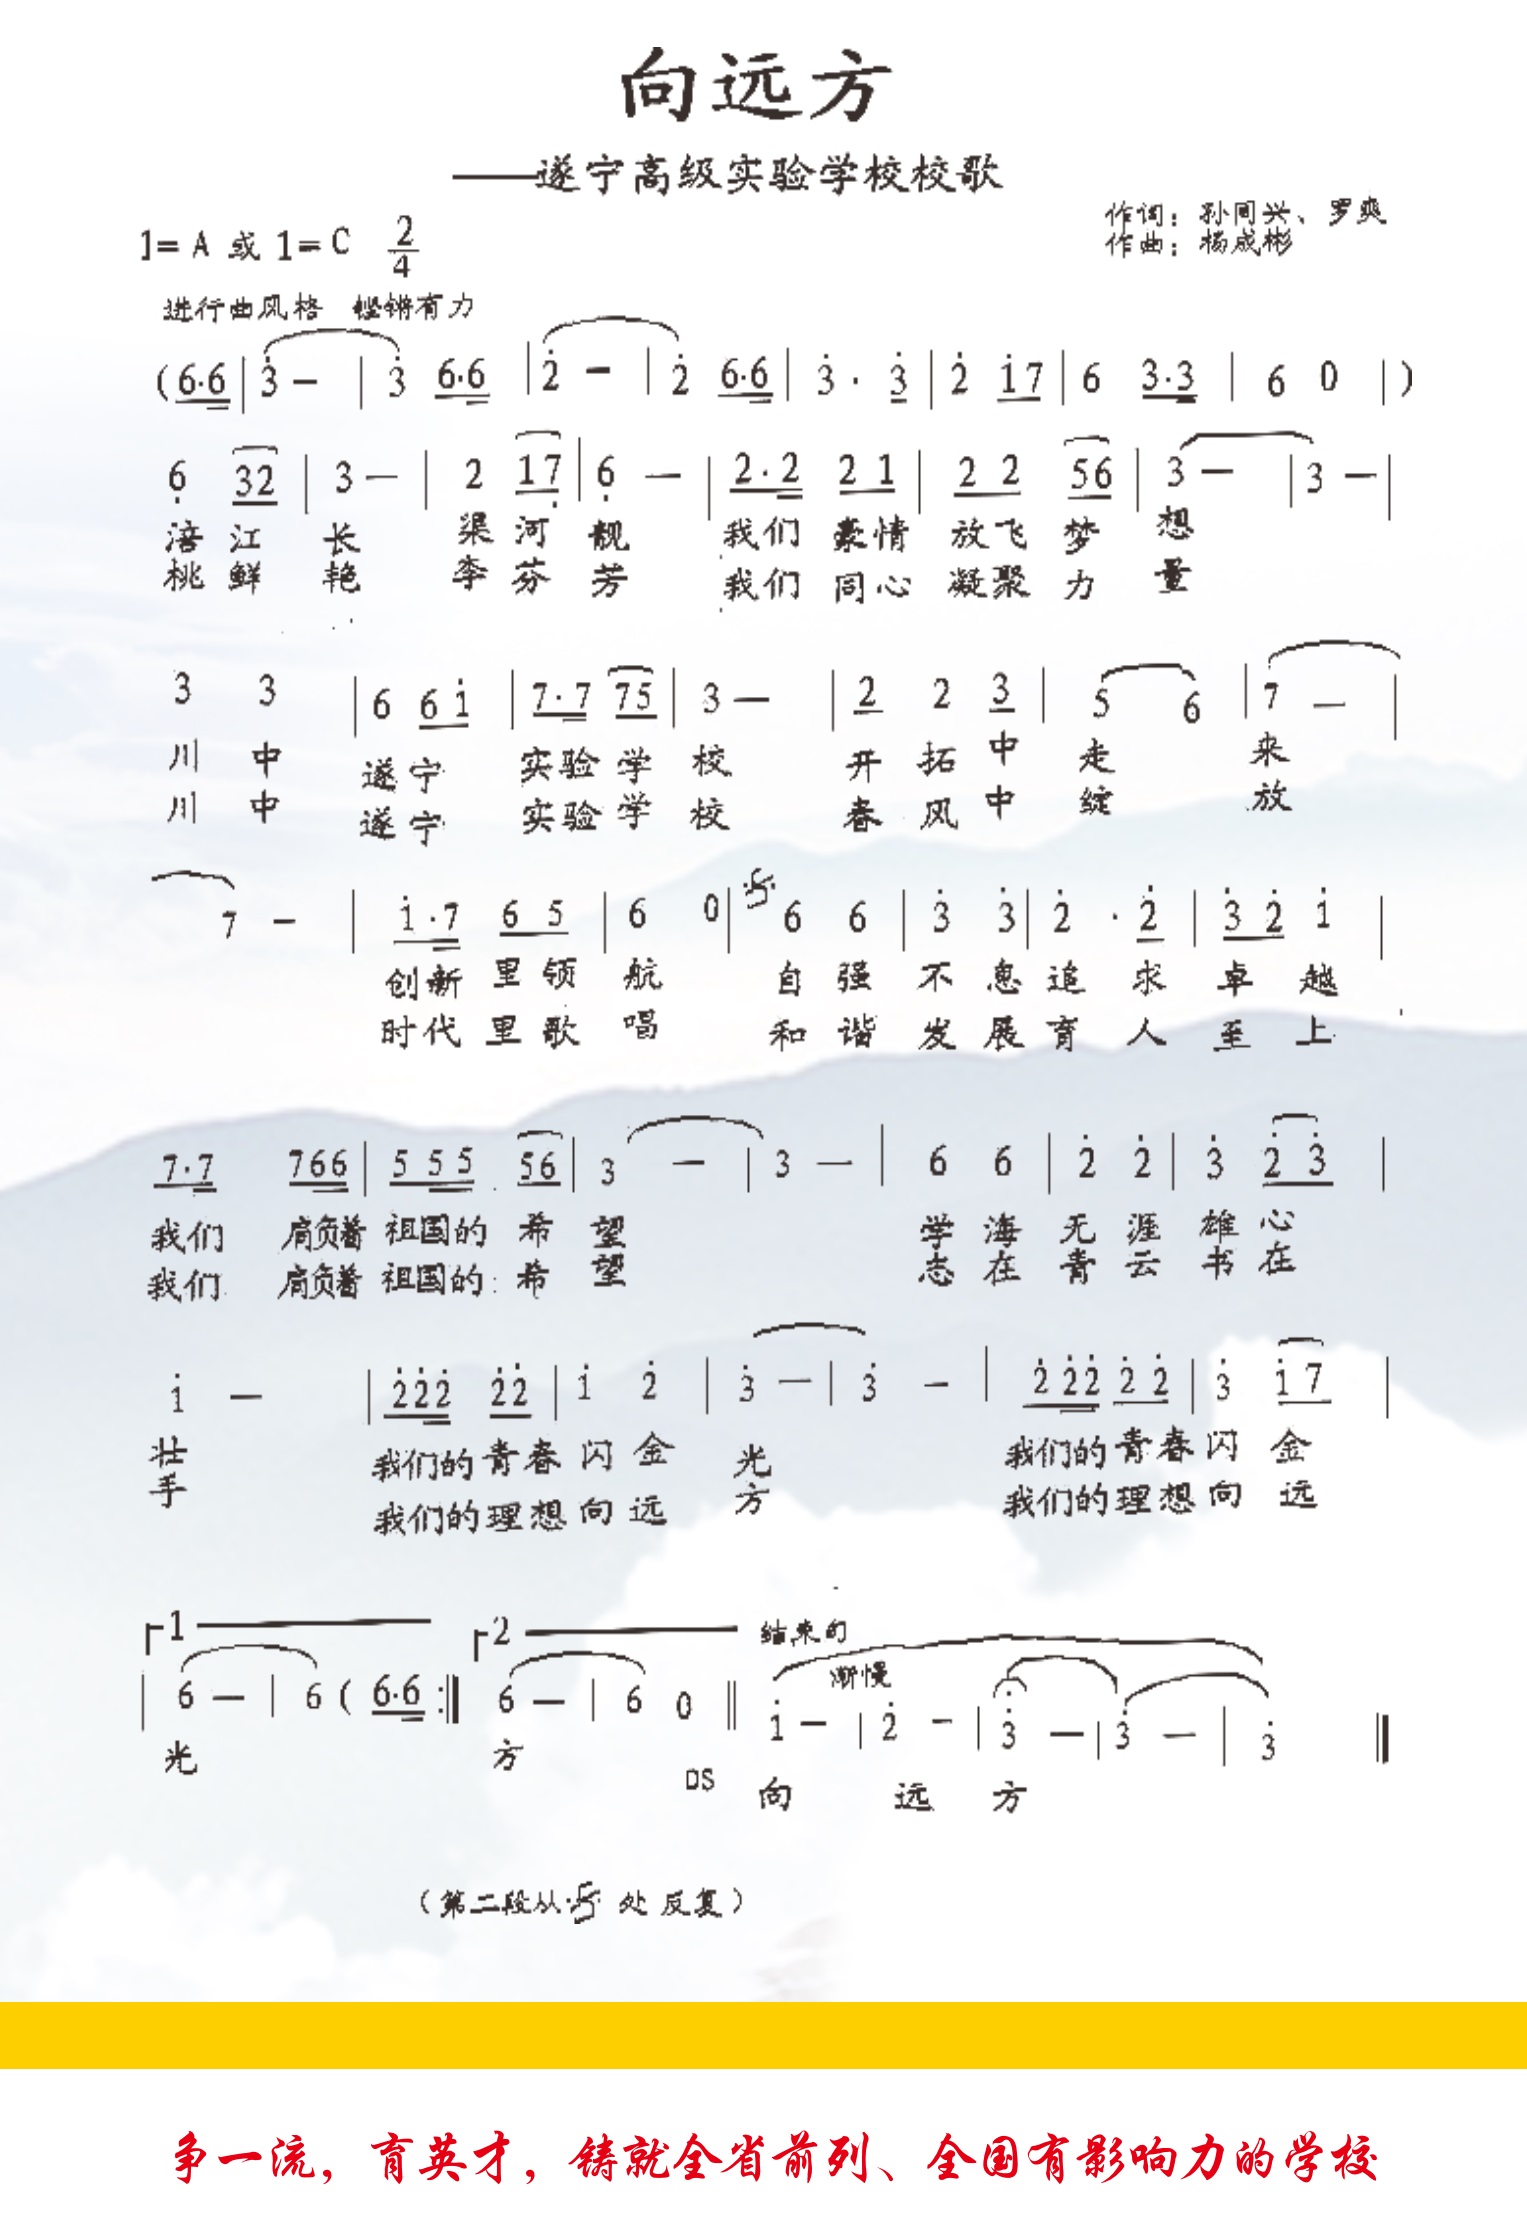 向远方
——遂宁高级实验学校校歌
作词：孙同兴、罗爽
1= A 或 1= C 2/4
作曲：杨成彬
进行曲风格 铿锵有力
(6·6 | 3̇ － | 3̇ 6·6 | 2̇ － | 2̇ 6·6 | 3̇ · 3̇ | 2̇ 1̇7 | 6 3·3 | 6 0 | )
6̣ 32 | 3 － | 2 17̣ | 6̣ － | 2·2 21 | 22 56 | 3 － | 3 － |
涪江 长 渠河 靓 我们 豪情 放飞 梦 想
桃鲜 艳 李芬 芳 我们 同心 凝聚 力 量
3 3 | 6 61̇ | 7·7 75 | 3 － | 2 2 3 | 5 6 | 7 － |
川 中 遂宁 实验 学 校 开 拓 中 走 来
川 中 遂宁 实验 学 校 春 风 中 绽 放
7 － | 1̇·7 65 | 6 0 | 𝄋 6 6 | 3̇ 3̇ | 2̇ · 2̇ | 3̇2̇ 1̇ |
创新 里领 航 自 强 不 息 追 求 卓 越
时代 里歌 唱 和 谐 发 展 育 人 至 上
7·7 766 | 555 56 | 3 － | 3 － | 6 6 | 2̇ 2̇ | 3̇ 2̇3̇ |
我们 肩负着 祖国的 希 望 学 海 无 涯 雄 心
我们 肩负着 祖国的 希 望 志 在 青 云 书 在
1̇ － | 2̇2̇2̇ 2̇2̇ | 1̇ 2̇ | 3̇ － | 3̇ － | 2̇2̇2̇ 2̇2̇ | 3̇ 1̇7 |
壮 我们的 青春 闪 金 光 我们的 青春 闪 金
手 我们的 理想 向 远 方 我们的 理想 向 远
1 2 结束句
渐慢
| 6 － | 6 ( 6·6 :‖ 6 － | 6 0 ‖ 1̇ － | 2̇ － | 3̇ － | 3̇ － | 3̇ ‖
光 方 DS 向 远 方
（第二段从 𝄋 处反复）
争一流，育英才，铸就全省前列、全国有影响力的学校